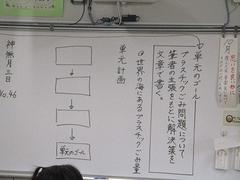 単元のゴール
プラスチックごみ問題について
筆者の主張をもとに解決策を
文章で書く。
世界の海にあるプラスチックごみ量
単元計画
単元のゴール
神無月三日
No.46